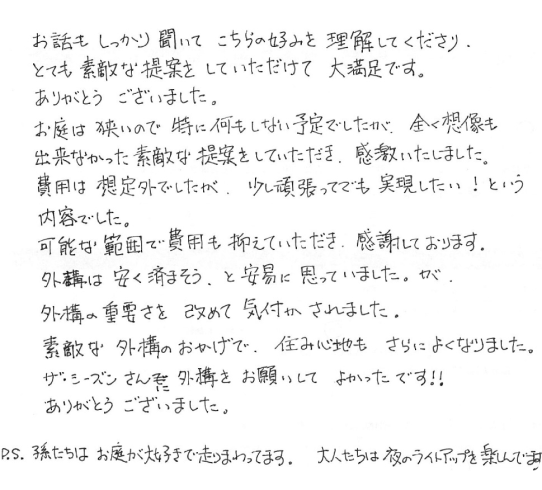 お話も しっかり 聞いて こちらの好みを 理解してくださり、
とても 素敵な 提案を していただけて 大満足です。
ありがとう ございました。
お庭は 狭いので 特に何もしない予定でしたが、全く想像も
出来なかった 素敵な 提案をしていただき、感激いたしました。
費用は 想定外でしたが、少し頑張ってでも 実現したい！という
内容でした。
可能な 範囲で費用も 抑えていただき、感謝しております。
外構は 安く済まそう、と安易に 思っていました。が、
外構の 重要さを 改めて 気付かされました。
素敵な 外構のおかげで、住み心地も さらによくなりました。
ザ・シーズン さんに 外構を お願いして よかったです!!
ありがとう ございました。
P.S. 孫たちは お庭が大好きで走りまわってます。 大人たちは 夜のライトアップを楽しんでます